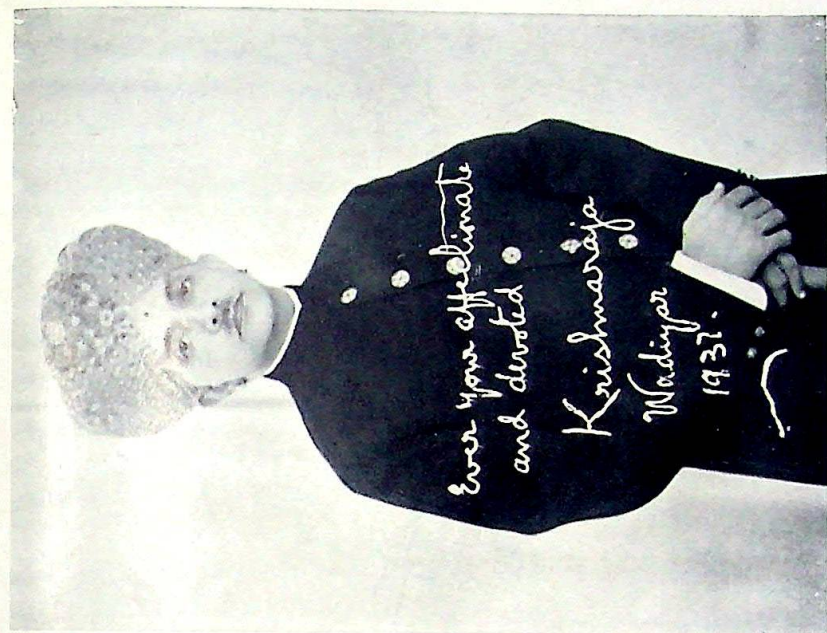 Ever your affectionate
and devoted
Krishnaraja
Wadiyar
1937.